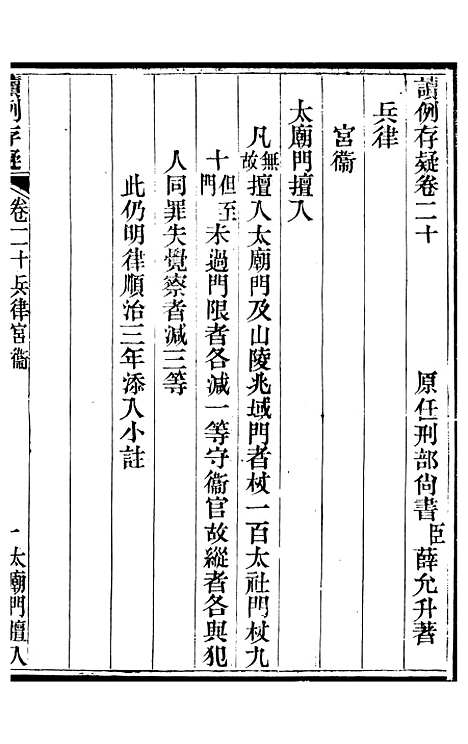 讀例存疑卷二十 原任刑部尙書臣薛允升著
兵律
宮衞
太廟門擅入
凡無故擅入太廟門及山陵兆域門者杖一百太社門杖九
十但至門未過門限者各減一等守衞官故縱者各與犯
人同罪失覺察者減三等
此仍明律順治三年添入小註
讀例存疑 卷二十兵律宮衞 一 太廟門擅入